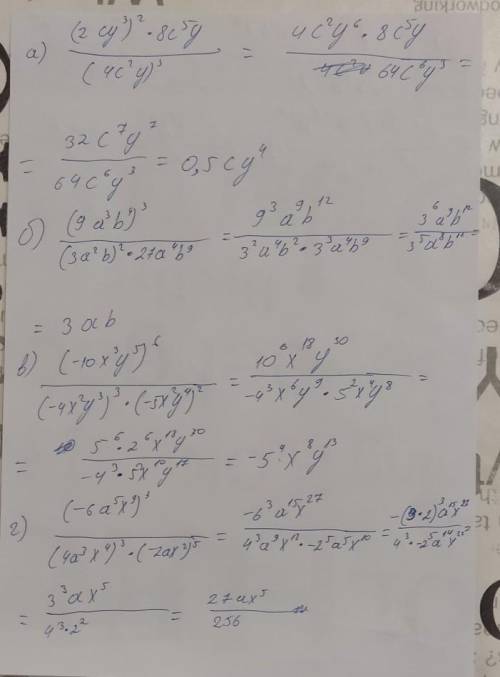 а) (2cy³)² · 8c⁵y / (4c²y)³ = 4c²y⁶ · 8c⁵y / 64c⁶y³ =
= 32c⁷y⁷ / 64c⁶y³ = 0,5cy⁴
б) (9a³b⁴)³ / (3a²b)² · 27a⁴b⁹ = 9³a⁹b¹² / 3²a⁴b² · 3³a⁴b⁹ = 3⁶a⁹b¹² / 3⁵a⁸b¹¹ =
= 3ab
в) (-10x³y⁵)⁶ / (-4x²y³)³ · (-5x²y⁴)² = 10⁶x¹⁸y³⁰ / -4³x⁶y⁹ · 5²x⁴y⁸ =
= 5⁶ · 2⁶x¹⁸y³⁰ / -4³ · 5²x¹⁰y¹⁷ = -5⁴x⁸y¹³
г) (-6a⁵x⁹)³ / (4a³x⁴)³ · (-2ax²)⁵ = -6³a¹⁵x²⁷ / 4³a⁹x¹² · -2⁵a⁵x¹⁰ = -(3·2)³a¹⁵x²⁷ / 4³ · -2⁵a¹⁴x²²
= 3³ax⁵ / 4³·2² = 27ax⁵ / 256